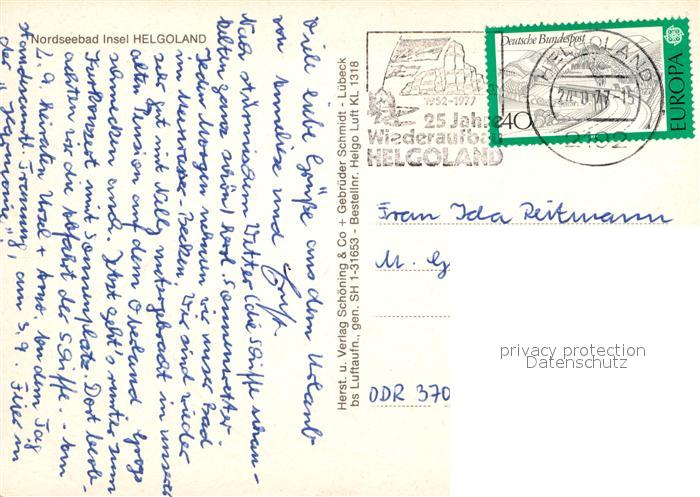 Nordseebad Insel HELGOLAND
Viele liebe Grüße aus dem Urlaub
von Anneliese und
Nach stürmischem Wetter (die Schiffe
ganz schön) Sonnenwetter.
Jeden Morgen nehmen wir unser Bad
im Meerwasser-Becken. Wir sind wieder
sehr gut mit untergebracht in unserer
alten Pension auf dem Oberland.
schmecken und. Jetzt geht's runter zum
Kurkonzert mit Sonnenplatz. Dort beob-
achten wir die Abfahrt der Schiffe. - Am
2.9. Ursel + dem Tag
Standesamtl. Trauung, am 3.9. Feier in
der "Harmonie".
Herst. u. Verlag Schöning & Co + Gebrüder Schmidt - Lübeck
bs Luftaufn., gen. SH 1-31653 - Bestellnr. Helgo Luft KL 1318
1952-1977
25 Jahre
Wiederaufbau
HELGOLAND
Deutsche Bundespost
40
EUROPA
HELGOLAND
2192
Frau Ida Reitmann
M. G
DDR 370
privacy protection
Datenschutz